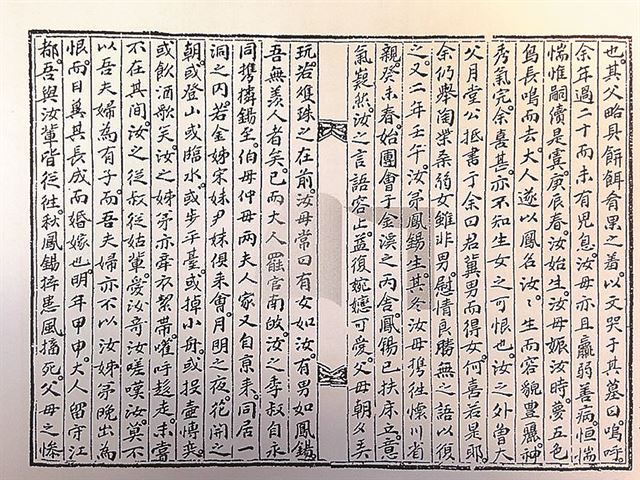 也其父略具餠餌肴果之羞以文哭子其墓曰嗚呼
余年過二十而未有兒息汝母亦且羸弱善病恒惴
惴惟嗣續是寘庚辰春汝始生汝母娠汝時夢五色
鳥長鳴而去大人遂以鳳名汝〻生而容貌豊麗神
秀氣完余喜甚亦不知生女之可恨也汝之外曾大
父月堂公抵書于余曰君冀男而得女何喜若是耶
余仍擧陶榮桑弱女雖非男慰情良勝無之語以復
之又二年壬午汝弟鳳錫生其冬汝母携往懷川省
親癸未春始團會于金溪之丙舍鳳錫已扶床立意
氣嶷然汝之言語容止益復婉嫕可愛父母朝夕弄
玩若雙珠之在前汝母常曰有女如汝有男如鳳錫
吾無羨人者矣已而大人罷官南歸汝之季叔自永
同携獜錫至伯母仲母兩夫人家又自京來同居一
洞之內若金姊宋妹尹妹俱來會月明之夜花開之
朝或登山或臨水或步平臺或掉小舟或投壺博奕
或飮酒歌笑汝之姊弟亦牽衣挈帶嚾呼趍走未甞
不在其間汝之從叔從姑輩愛汝奇汝嗟嘆汝莫不
以吾夫婦爲有子而吾夫婦亦不以汝姊弟晚出爲
恨而日冀其長成而婚嫁也明年甲申大人留守江
都吾與汝輩皆從往秋鳳錫猝患風搐死父母之慘